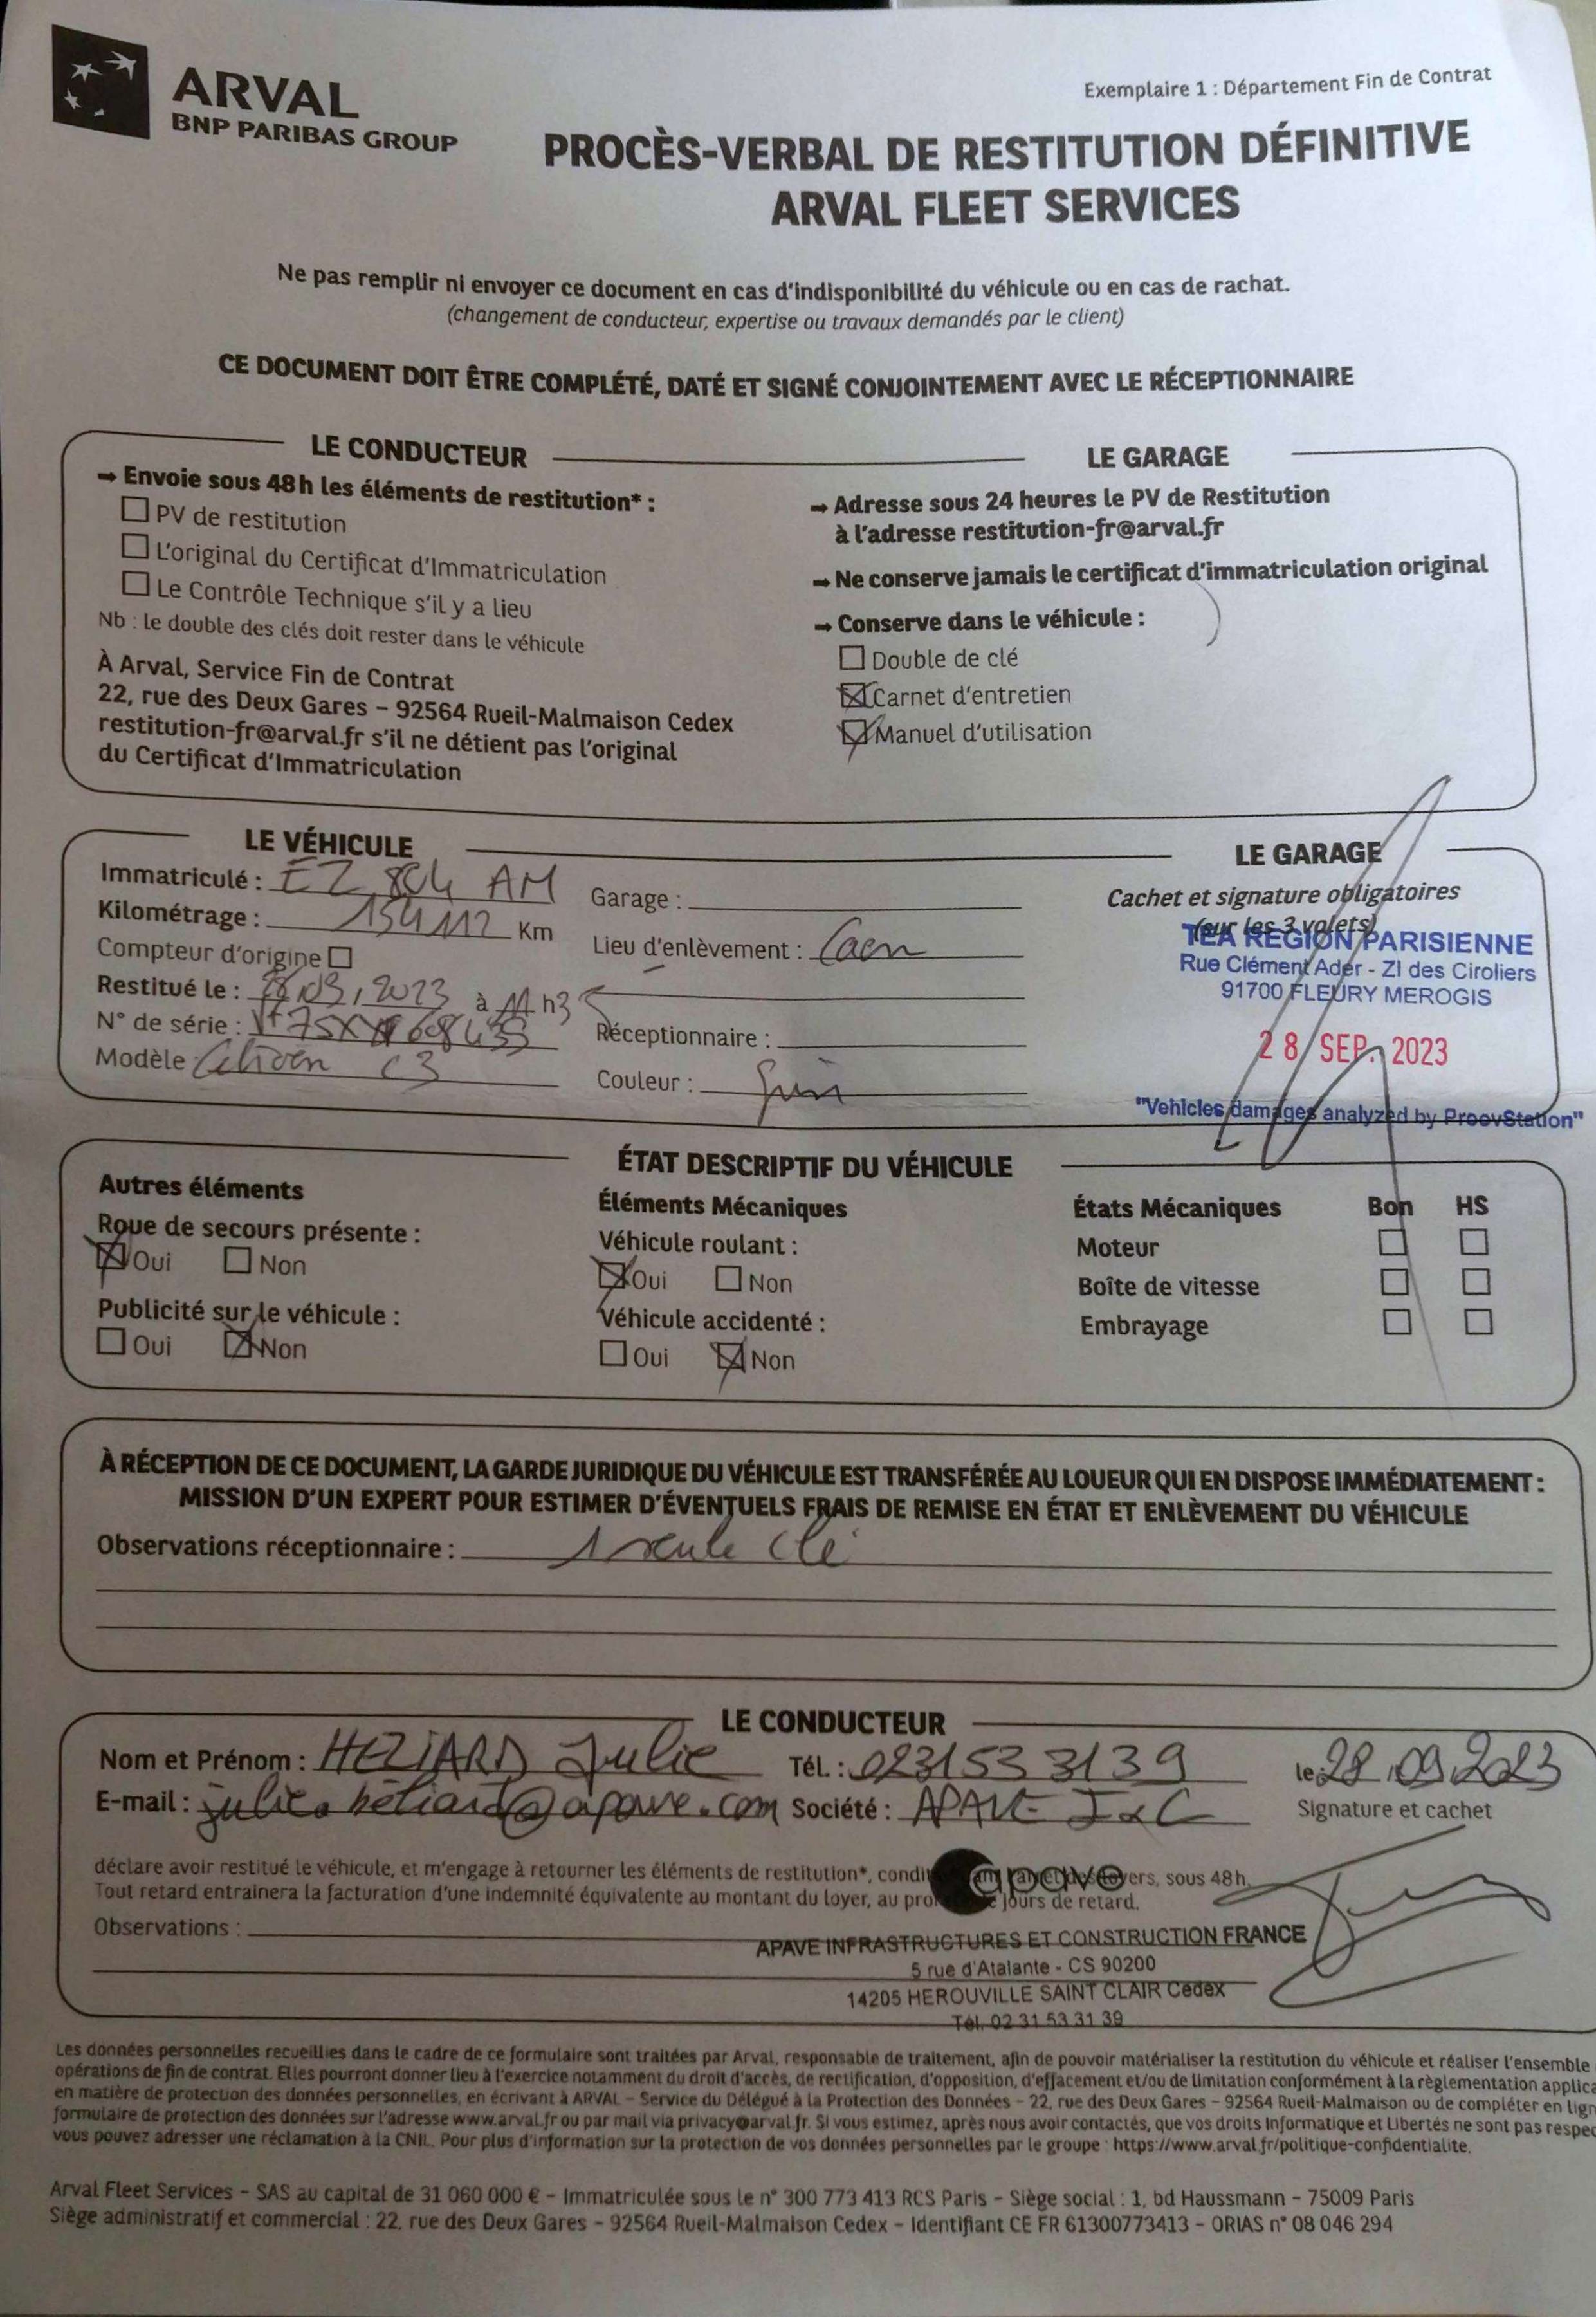 ARVAL
BNP PARIBAS GROUP
Exemplaire 1 : Département Fin de Contrat
PROCÈS-VERBAL DE RESTITUTION DÉFINITIVE
ARVAL FLEET SERVICES
Ne pas remplir ni envoyer ce document en cas d'indisponibilité du véhicule ou en cas de rachat.
(changement de conducteur, expertise ou travaux demandés par le client)
CE DOCUMENT DOIT ÊTRE COMPLÉTÉ, DATÉ ET SIGNÉ CONJOINTEMENT AVEC LE RÉCEPTIONNAIRE
LE CONDUCTEUR
→ Envoie sous 48h les éléments de restitution* :
☐ PV de restitution
☐ L'original du Certificat d'Immatriculation
☐ Le Contrôle Technique s'il y a lieu
Nb : le double des clés doit rester dans le véhicule
À Arval, Service Fin de Contrat
22, rue des Deux Gares – 92564 Rueil-Malmaison Cedex
restitution-fr@arval.fr s'il ne détient pas l'original
du Certificat d'Immatriculation
LE GARAGE
→ Adresse sous 24 heures le PV de Restitution
à l'adresse restitution-fr@arval.fr
→ Ne conserve jamais le certificat d'immatriculation original
→ Conserve dans le véhicule :
☐ Double de clé
☒ Carnet d'entretien
☒ Manuel d'utilisation
LE VÉHICULE
Immatriculé : EZ 804 AM
Kilométrage : 154112 Km
Compteur d'origine ☐
Restitué le : 28/09/2023 à 11 h3
N° de série :
Modèle : Citroen C3
Garage :
Lieu d'enlèvement : Caen
Réceptionnaire :
Couleur : Gris
LE GARAGE
Cachet et signature obligatoires
(sur les 3 volets)
TEA REGION PARISIENNE
Rue Clément Ader - ZI des Ciroliers
91700 FLEURY MEROGIS
28 SEP. 2023
"Vehicles damages analyzed by ProovStation"
ÉTAT DESCRIPTIF DU VÉHICULE
Autres éléments
Roue de secours présente :
☒ Oui ☐ Non
Publicité sur le véhicule :
☐ Oui ☒ Non
Éléments Mécaniques
Véhicule roulant :
☒ Oui ☐ Non
Véhicule accidenté :
☐ Oui ☒ Non
États Mécaniques Bon HS
Moteur ☐ ☐
Boîte de vitesse ☐ ☐
Embrayage ☐ ☐
À RÉCEPTION DE CE DOCUMENT, LA GARDE JURIDIQUE DU VÉHICULE EST TRANSFÉRÉE AU LOUEUR QUI EN DISPOSE IMMÉDIATEMENT :
MISSION D'UN EXPERT POUR ESTIMER D'ÉVENTUELS FRAIS DE REMISE EN ÉTAT ET ENLÈVEMENT DU VÉHICULE
Observations réceptionnaire : 1 seule clé
LE CONDUCTEUR
Nom et Prénom : HELIARD Julie Tél. : 0231533139 le 28.09.2023
E-mail : julie.heliard@apave.com Société : APAVE I&C Signature et cachet
déclare avoir restitué le véhicule, et m'engage à retourner les éléments de restitution*, sous 48h.
Tout retard entrainera la facturation d'une indemnité équivalente au montant du loyer, au jours de retard.
apave
Observations :
APAVE INFRASTRUCTURES ET CONSTRUCTION FRANCE
5 rue d'Atalante - CS 90200
14205 HEROUVILLE SAINT CLAIR Cedex
Tél. 02 31 53 31 39
Les données personnelles recueillies dans le cadre de ce formulaire sont traitées par Arval, responsable de traitement, afin de pouvoir matérialiser la restitution du véhicule et réaliser l'ensemble
opérations de fin de contrat. Elles pourront donner lieu à l'exercice notamment du droit d'accès, de rectification, d'opposition, d'effacement et/ou de limitation conformément à la règlementation applica
en matière de protection des données personnelles, en écrivant à ARVAL – Service du Délégué à la Protection des Données – 22, rue des Deux Gares – 92564 Rueil-Malmaison ou de compléter en lign
formulaire de protection des données sur l'adresse www.arval.fr ou par mail via privacy@arval.fr. Si vous estimez, après nous avoir contactés, que vos droits Informatique et Libertés ne sont pas respec
vous pouvez adresser une réclamation à la CNIL. Pour plus d'information sur la protection de vos données personnelles par le groupe : https://www.arval.fr/politique-confidentialite.
Arval Fleet Services – SAS au capital de 31 060 000 € – Immatriculée sous le n° 300 773 413 RCS Paris – Siège social : 1, bd Haussmann – 75009 Paris
Siège administratif et commercial : 22, rue des Deux Gares – 92564 Rueil-Malmaison Cedex – Identifiant CE FR 61300773413 – ORIAS n° 08 046 294